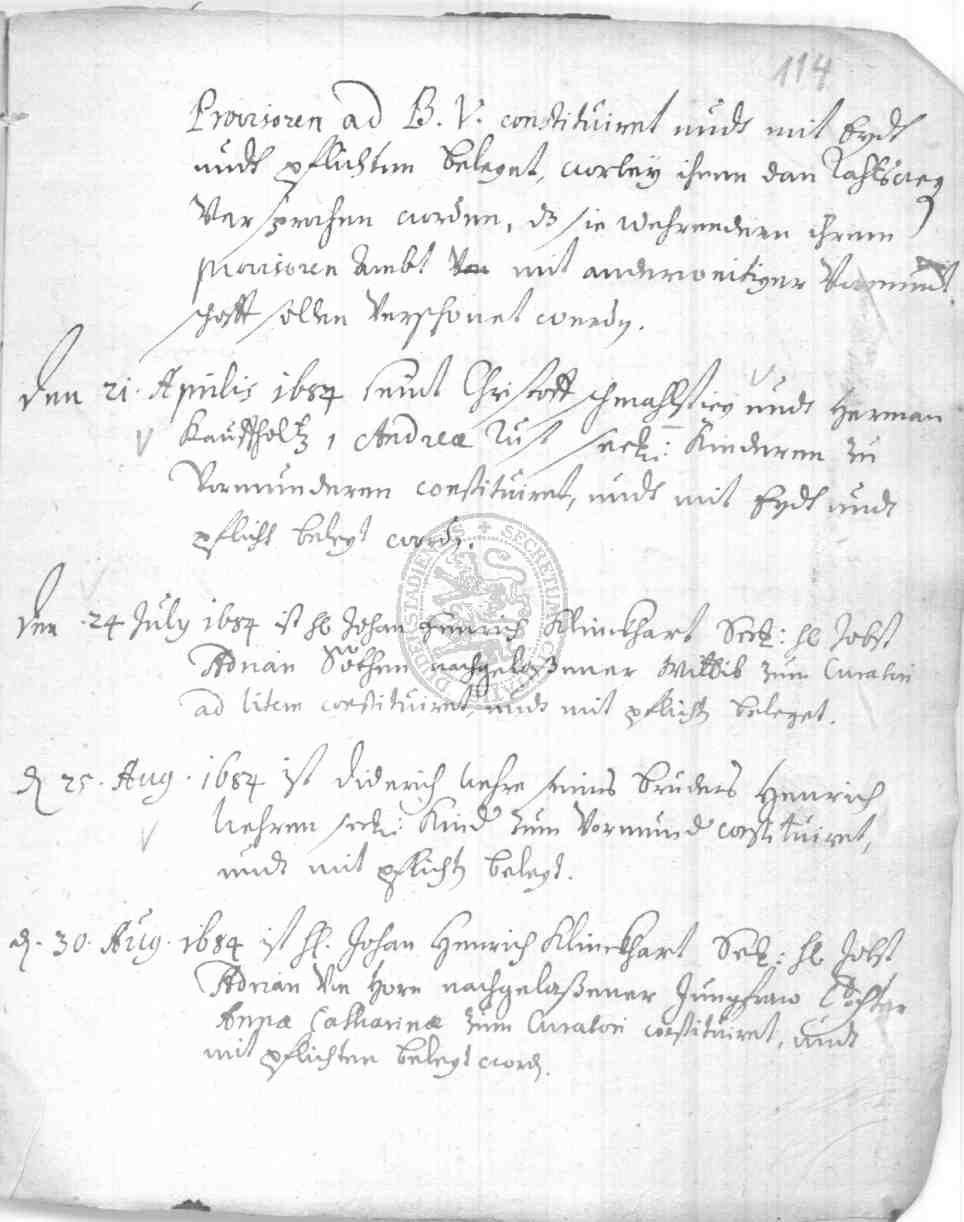 114
Provisoren ad B. V. constituiret undt mit Eydt
undt pflichten beleget, worbey ihnen dan Rahtsweg
Versprochen worden, dß sie wehrendern ihrem
provisoren Ambt mit anderweitiger Vormünt
schafft sollen Verschonet werdn.
Den 21. Aprilis 1684 seint Christoff schmahlstieg undt Herman
Kauffholtz, Andreæ Rust seel: Kinderen zu
Vormunderen constituiret, undt mit Eydt undt
pflicht belegt wordn.
Den 24 July 1684 ist hl Johan Henrich Klinckhart Seel: hl Jobst
Adrian Söthen nachgelaßener Wittib zum Curatori
ad litem constituiret, undt mit pflichtn beleget.
d 25. Aug. 1684 ist Diderich Nehre seines bruders Henrich
Nehren seel: Kind zum Vormund constituiret,
undt mit pflichtn belegt.
d. 30. Aug. 1684 ist hl. Johan Henrich Klinckhart Seel: hl Jobst
Adrian Von Horn nachgelaßener Jungfraw Tochter
Annæ Catharinæ zum Curatori constituiret, undt
mit pflichten belegt wordn.
SECRETUM CIVITATIS DUDERSTADIENSIS